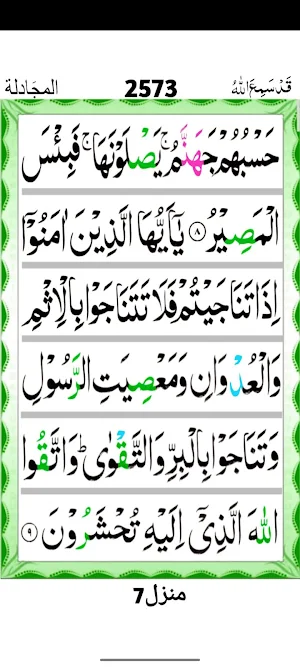 المجادلة 2573 قَدْ سَمِعَ اللهُ
حَسْبُهُمْ جَهَنَّمُ ۚ يَصْلَوْنَهَا ۚ فَبِئْسَ
الْمَصِيْرُ ۸ يٰۤاَيُّهَا الَّذِيْنَ اٰمَنُوْۤا
اِذَا تَنَاجَيْتُمْ فَلَا تَتَنَاجَوْا بِالْاِثْمِ
وَالْعُدْوَانِ وَمَعْصِيَتِ الرَّسُوْلِ
وَتَنَاجَوْا بِالْبِرِّ وَالتَّقْوٰى ؕ وَاتَّقُوا
اللّٰهَ الَّذِيْۤ اِلَيْهِ تُحْشَرُوْنَ ۹
منزل7